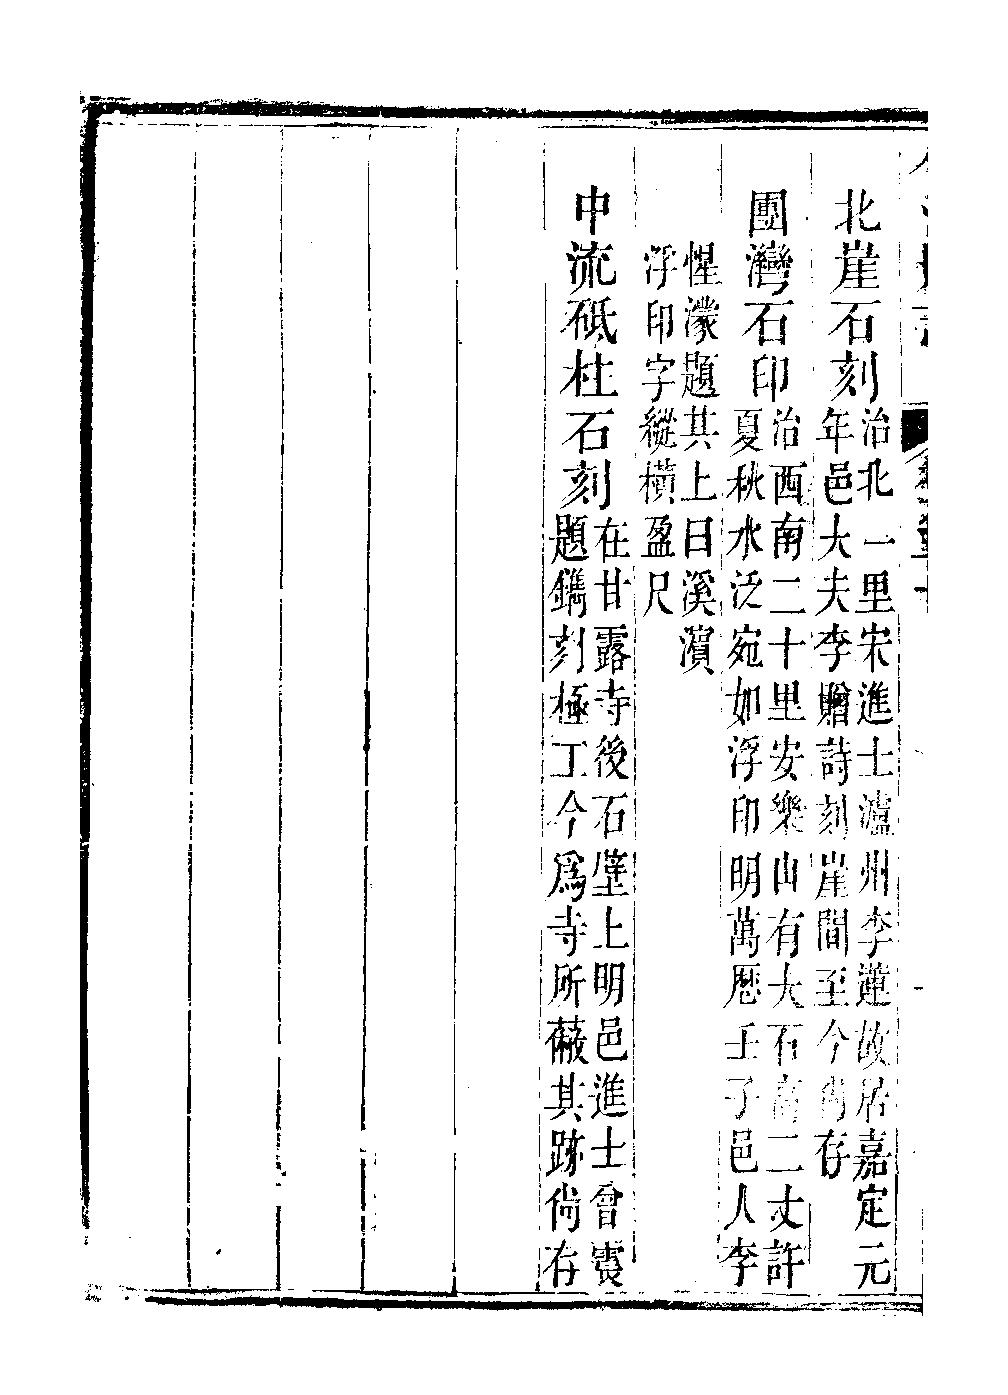 北崖石刻治北一里宋進士瀘州李蓮故居嘉定元
年邑大夫李贈詩刻崖間至今尚存
團灣石印治西南二十里安樂山有大石高二丈許
夏秋水泛宛如浮印明萬厯壬子邑人李
惺濛題其上曰溪濵
浮印字縱橫盈尺
中流砥柱石刻在甘露寺後石壁上明邑進士曾
題鐫刻極工今爲寺所蔽其跡尙存